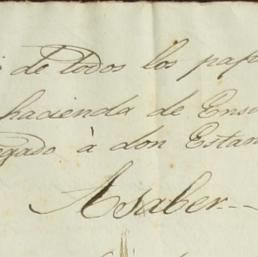 de todos los pap
hacienda de Ense
egado à don Estan
Asaber.-